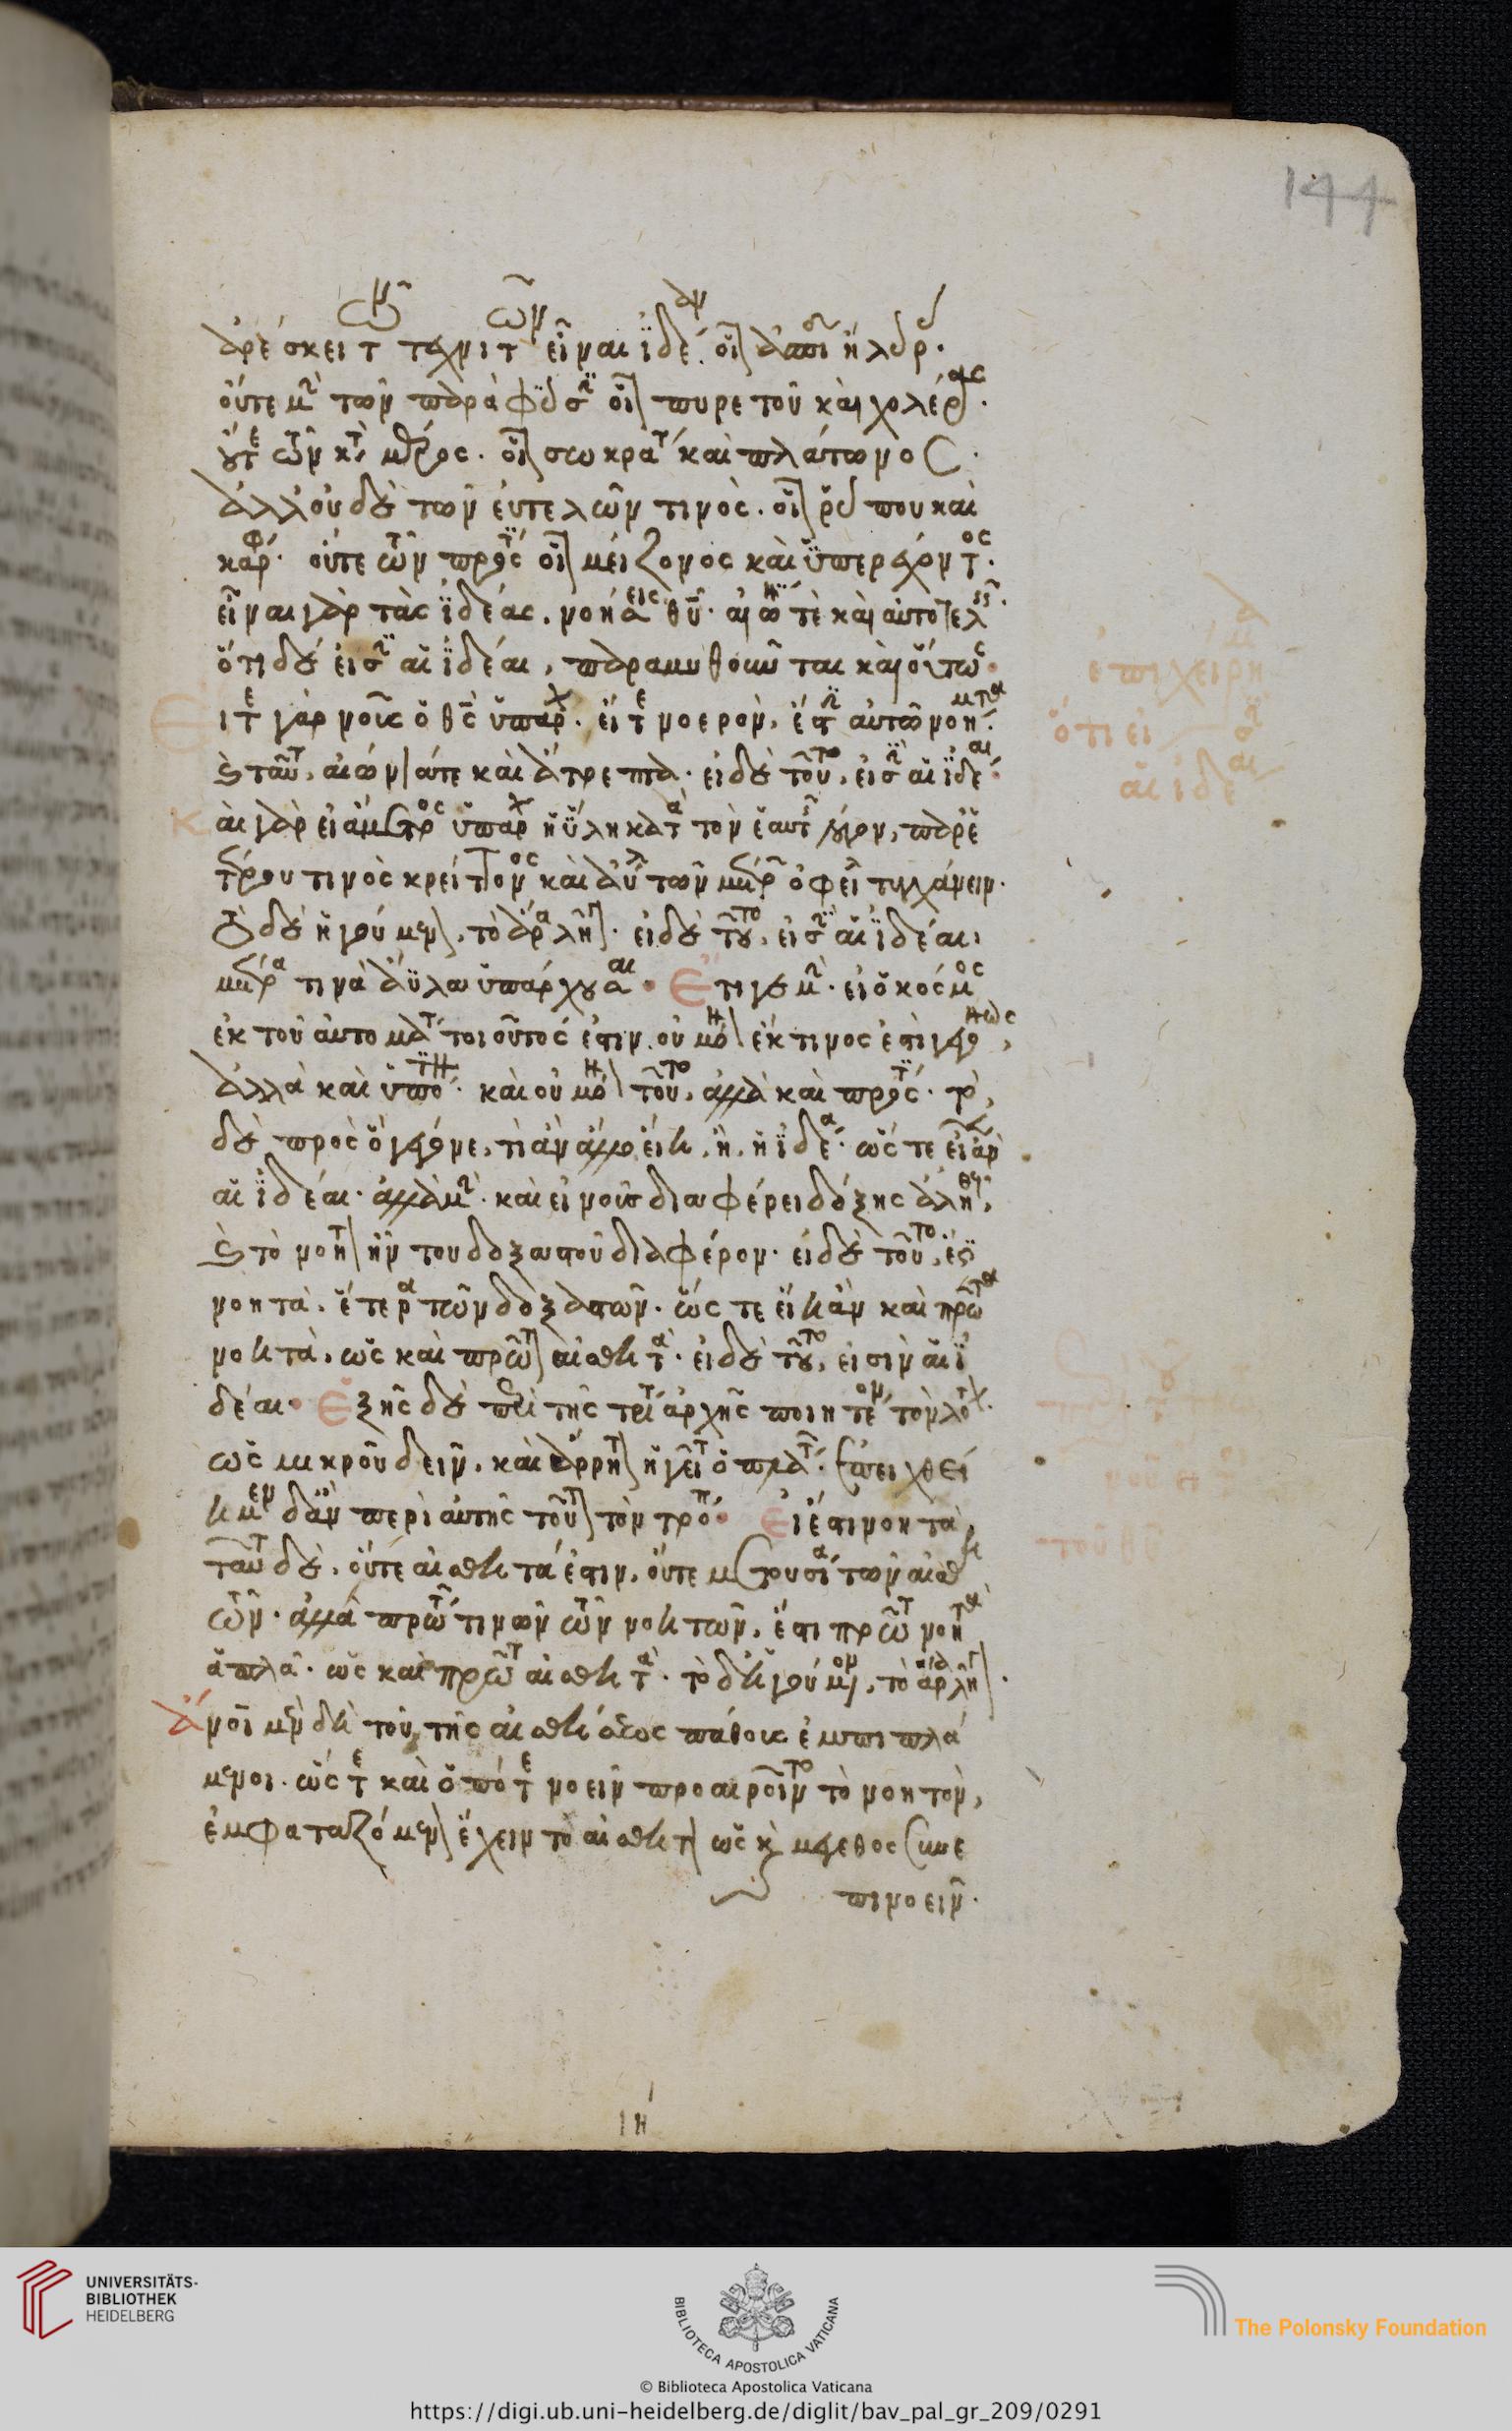 144
ἀρέσκει τ τεχνιτῶν εἶναι ἰδέ. οἷ ἀσπι ἢ λύρ.
οὔτε μὴ τῶν παρὰ φύσ οἷ πυρετοῦ καὶ χολέρας.
οὔτε τῶν κτ μέρος. οἷ σωκράτ καὶ πλάτωνος.
ἀλλ' οὐδὲ τῶν εὐτελῶν τινὸς. οἷ ρύπου καὶ
κάρφ. οὔτε τῶν πρός τι οἷ μείζονος καὶ ὑπερέχοντος.
εἶναι γὰρ τὰς ἰδέας, νοήσεις θυ. αἰω τὲ καὶ αὐτοτελ
ὅτι δέ εἰσι αἱ ἰδέαι, παραμυθοῦνται καὶ οὕτως
Ειτε γὰρ νοῦς ὁ θς ὑπάρχ. εἴτε νοερὸν, ἔστι αὐτῶ νοήματα
καὶ ταῦτ, αἰών ατε καὶ ἄτρεπτα. εἰ δὲ τοῦτο, εἰσὶ αἱ ἰδέαι
Και γὰρ εἰ ἄμετρος ὑπάρχ ἡ ὕλη κατὰ τὸν ἑαυτ λόγον, παρ' ἑ
τέρου τινὸς κρείττονος καὶ ἀύλ τῶν μέτρ ὀφείλ τυγχάνειν.
τὸ δὲ ἡγούμεν, τὸ ἄρα λῆγ. εἰ δὲ τοῦτο, εἰσὶ αἱ ἰδέαι,
μέτρα τινὰ ἄϋλα ὑπάρχουσαι. Ετι γε μὴ. εἰ ὁ κόσμος
ἐκ τοῦ αὐτομάτ τοιοῦτός ἐστιν. οὐ μόν ἔκ τινος ἐστὶ γεγονως,
ἀλλὰ καὶ ὑπό τιν. καὶ οὐ μόν τοῦτο, ἀλλὰ καὶ πρός τι. τὸ,
δὲ πρὸς ὃ γέγονε, τί ἂν ἄλλο εἴη, ἢ, ἡ ἰδέα. ὥς τε εἶεν ἂν
αἱ ἰδέαι. ἀλλὰ μὴ. καὶ εἰ νοῦς διαφέρει δόξης ἀληθ,
καὶ τὸ νοητ ἦν του δοξαστοῦ διαφέρον. εἰ δὲ τοῦτο, ἔστι
νοητὰ, ἕτερα τῶν δοξαστῶν. ὥς τε εἴη ἂν καὶ πρῶτα
νοητὰ, ὡς καὶ πρῶτ αἰσθητά. εἰ δὲ τοῦτο, εἰσὶν αἱ ἰ
δέαι. Εξῆς δὲ περὶ τῆς τρίτ ἀρχῆς ποιητέον τὸν λό
ὡς μικροῦ δεῖν, καὶ ἄρρητ ἡγεῖτ ὁ πλάτ. ἐπειχθεί
ημεν δἂν περὶ αὐτῆς τοῦτ τὸν τρόπ. Ει ἔστι νοητὰ,
ταῦτ δὲ, οὔτε αἰσθητά ἐστιν, οὔτε μετουσία τῶν αἰσθη
τῶν. ἀλλὰ πρώτ τινων τῶν νοητῶν, ἔστι πρῶτ νοητὰ
ἁπλᾶ. ὡς καὶ πρῶτ αἰσθητὰ. τὸ δ' ἡγούμ, τὸ ἄρα λῆγ.
ἄνοι μὲν δὴ τοῦ τῆς αἰσθήσεως πάθους ἐμπιπλά
μενοι. ὥς τε καὶ ὁπότε νοεῖν προαιροῖντο τὸ νοητὸν,
ἐμφαταζόμεν ἔχειν τὸ αἰσθητ ὡς κ μέγεθος συνε
πινοεῖν.
ἐπιχείρημα
ὅτι εἰσὶ
αἱ ἰδέαι
ιη
UNIVERSITÄTS-
BIBLIOTHEK
HEIDELBERG
BIBLIOTECA APOSTOLICA VATICANA
The Polonsky Foundation
© Biblioteca Apostolica Vaticana
https://digi.ub.uni-heidelberg.de/diglit/bav_pal_gr_209/0291